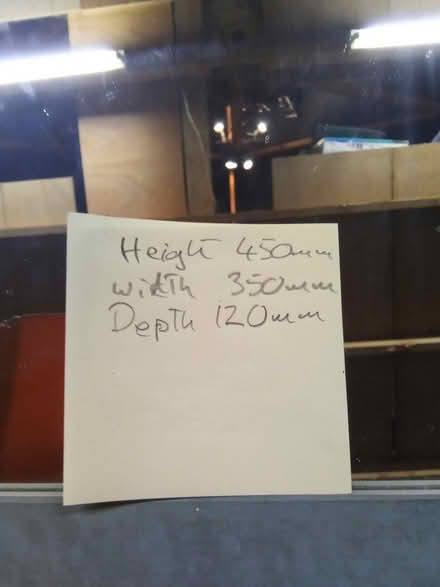 Height 450mm
width 350mm
Depth 120mm